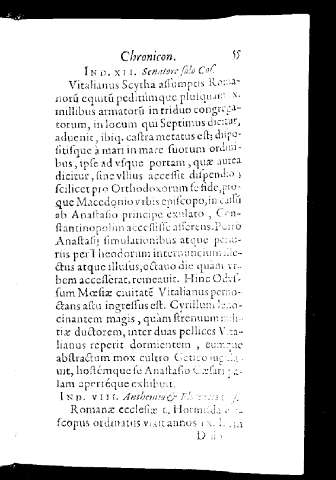 Chronicon. 55
IND. XII. Senatore solo Cos.
Vitalianus Scytha assumptis Roma-
norũ equitũ peditũmque plusquam x.
millibus armatorũ in triduo congrega-
torum, in locum qui Septimus dicitur,
aduenit, ibiq. castra metatus est: dispo-
sitisque à mari in mare suorum ordini-
bus, ipse ad vsque portam, quæ aurea
dicitur, sine vllius accessit dispendio:
scilicet pro Orthodoxorum se fide, pro-
que Macedonio vrbis episcopo, in cassũ
ab Anastasio principe exulato, Con-
stantinopolim accessisse asserens. Porro
Anastasij simulationibus atque periu-
riis per Theodorum internuncium ille-
ctus atque illusus, octauo die quàm vr-
bem accesserat, remeauit. Hinc Odys-
sum Mœsiæ ciuitatẽ Vitalianus perno-
ctans astu ingressus est. Cyrillum leno-
cinantem magis, quàm strenuum mili-
tiæ ductorem, inter duas pellices Vita-
lianus reperit dormientem, eumque
abstractum mox cultro Getico iugula-
uit, hostémque se Anastasio Cæsari pa-
lam apertéque exhibuit.
IND. VIII. Anthemio &
Romanæ ecclesiæ l. Hormisda e-
scopus ordinatus vixit annos IX.
D